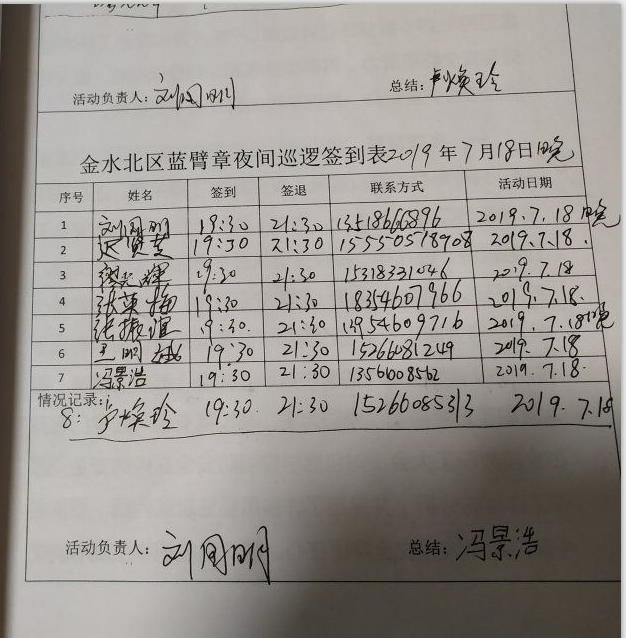 活动负责人：刘国明 总结：卢焕玲
金水北区蓝臂章夜间巡逻签到表2019年7月18日晚
序号 姓名 签到 签退 联系方式 活动日期
1 刘国明 19:30 21:30 13518666896 2019.7.18晚
2 19:30 21:30 15550578908 2019.7.18.
3 19:30 21:30 15318331046 2019.7.18
4 张英梅 19:30 21:30 18354607966 2019.7.18.
5 张振 19:30 21:30 13954609716 2019.7.18晚
6 王明 19:30 21:30 15266081249 2019.7.18
7 冯景浩 19:30 21:30 13561008562 2019.7.18.
情况记录：
8: 卢焕玲 19:30. 21:30 15266085313 2019.7.18
活动负责人：刘国明 总结：冯景浩